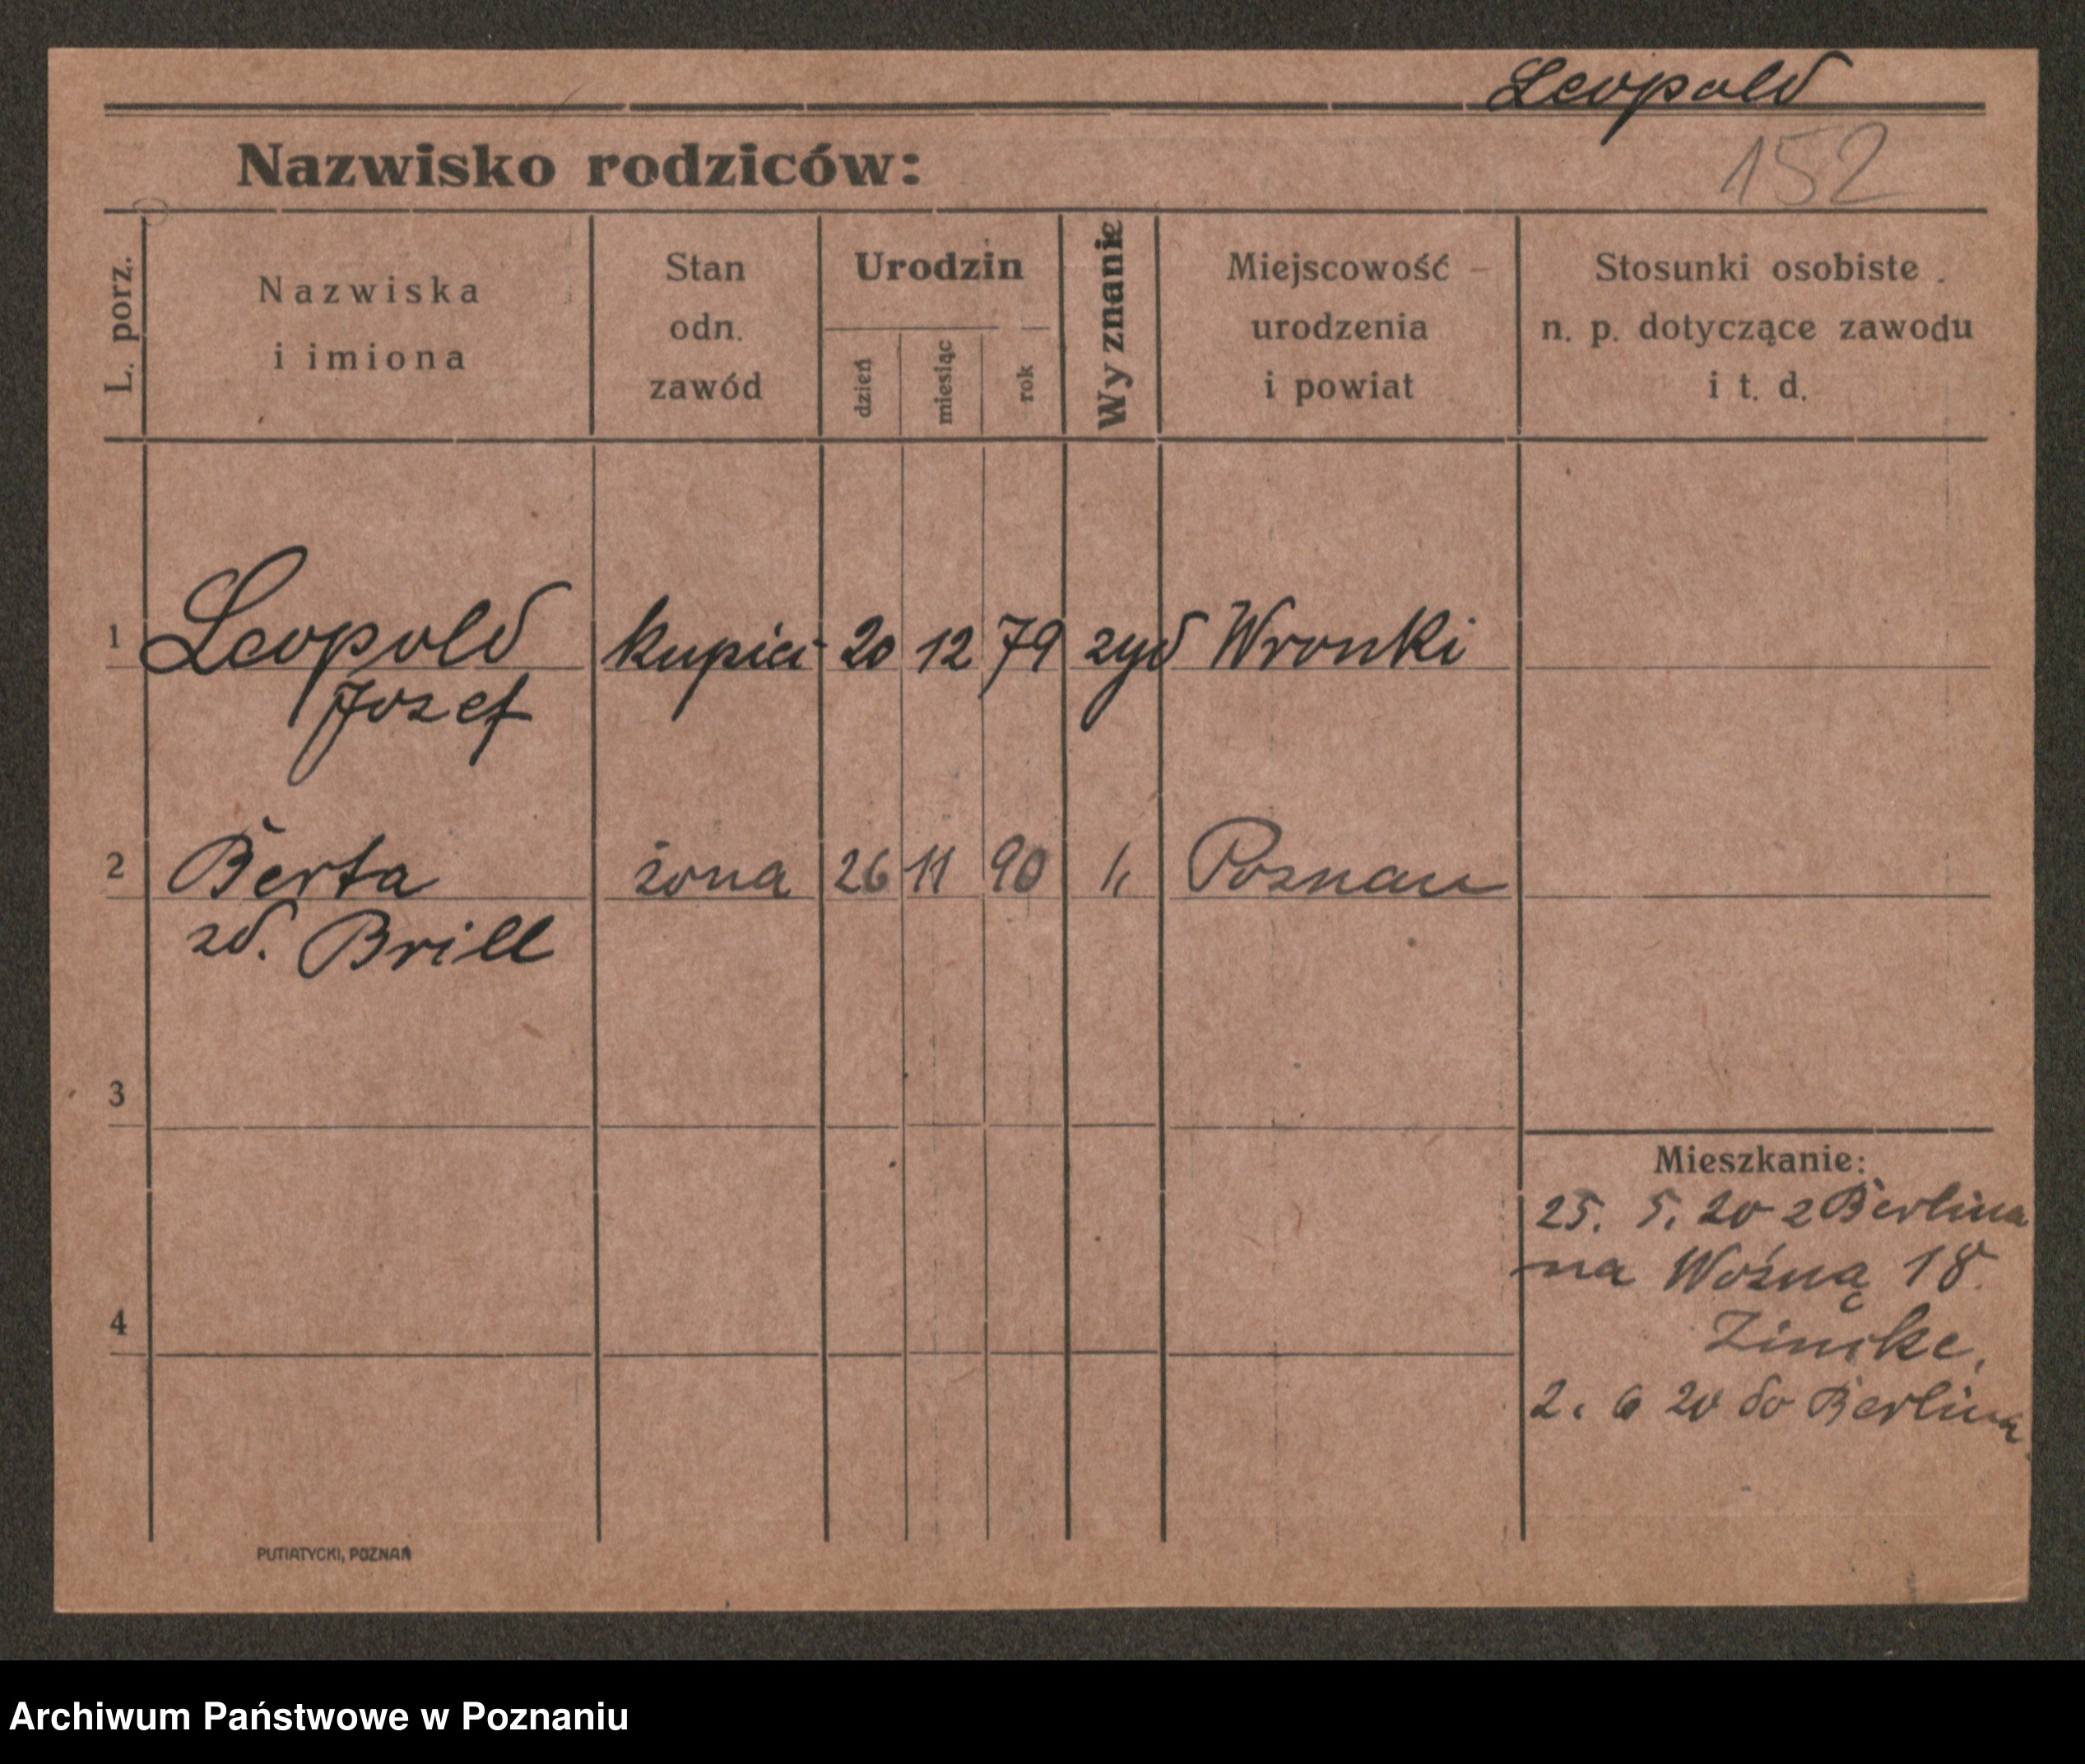 Leopold
152
Nazwisko rodziców:
L. porz.
Nazwiska
i imiona
Stan
odn.
zawód
Urodzin
dzień
miesiąc
rok
Wyznanie
Miejscowość
urodzenia
i powiat
Stosunki osobiste
n. p. dotyczące zawodu
i t. d.
1 Leopold kupiec 20 12 79 zyd Wronki
Jozef
2 Berta żona 26 11 90 " Poznan
zd. Brill
3
Mieszkanie:
25. 5. 20 z Berlina
na Woźną 18.
4
Zimke,
2. 6 20 do Berlina
PUTIATYCKI, POZNAŃ
Archiwum Państwowe w Poznaniu